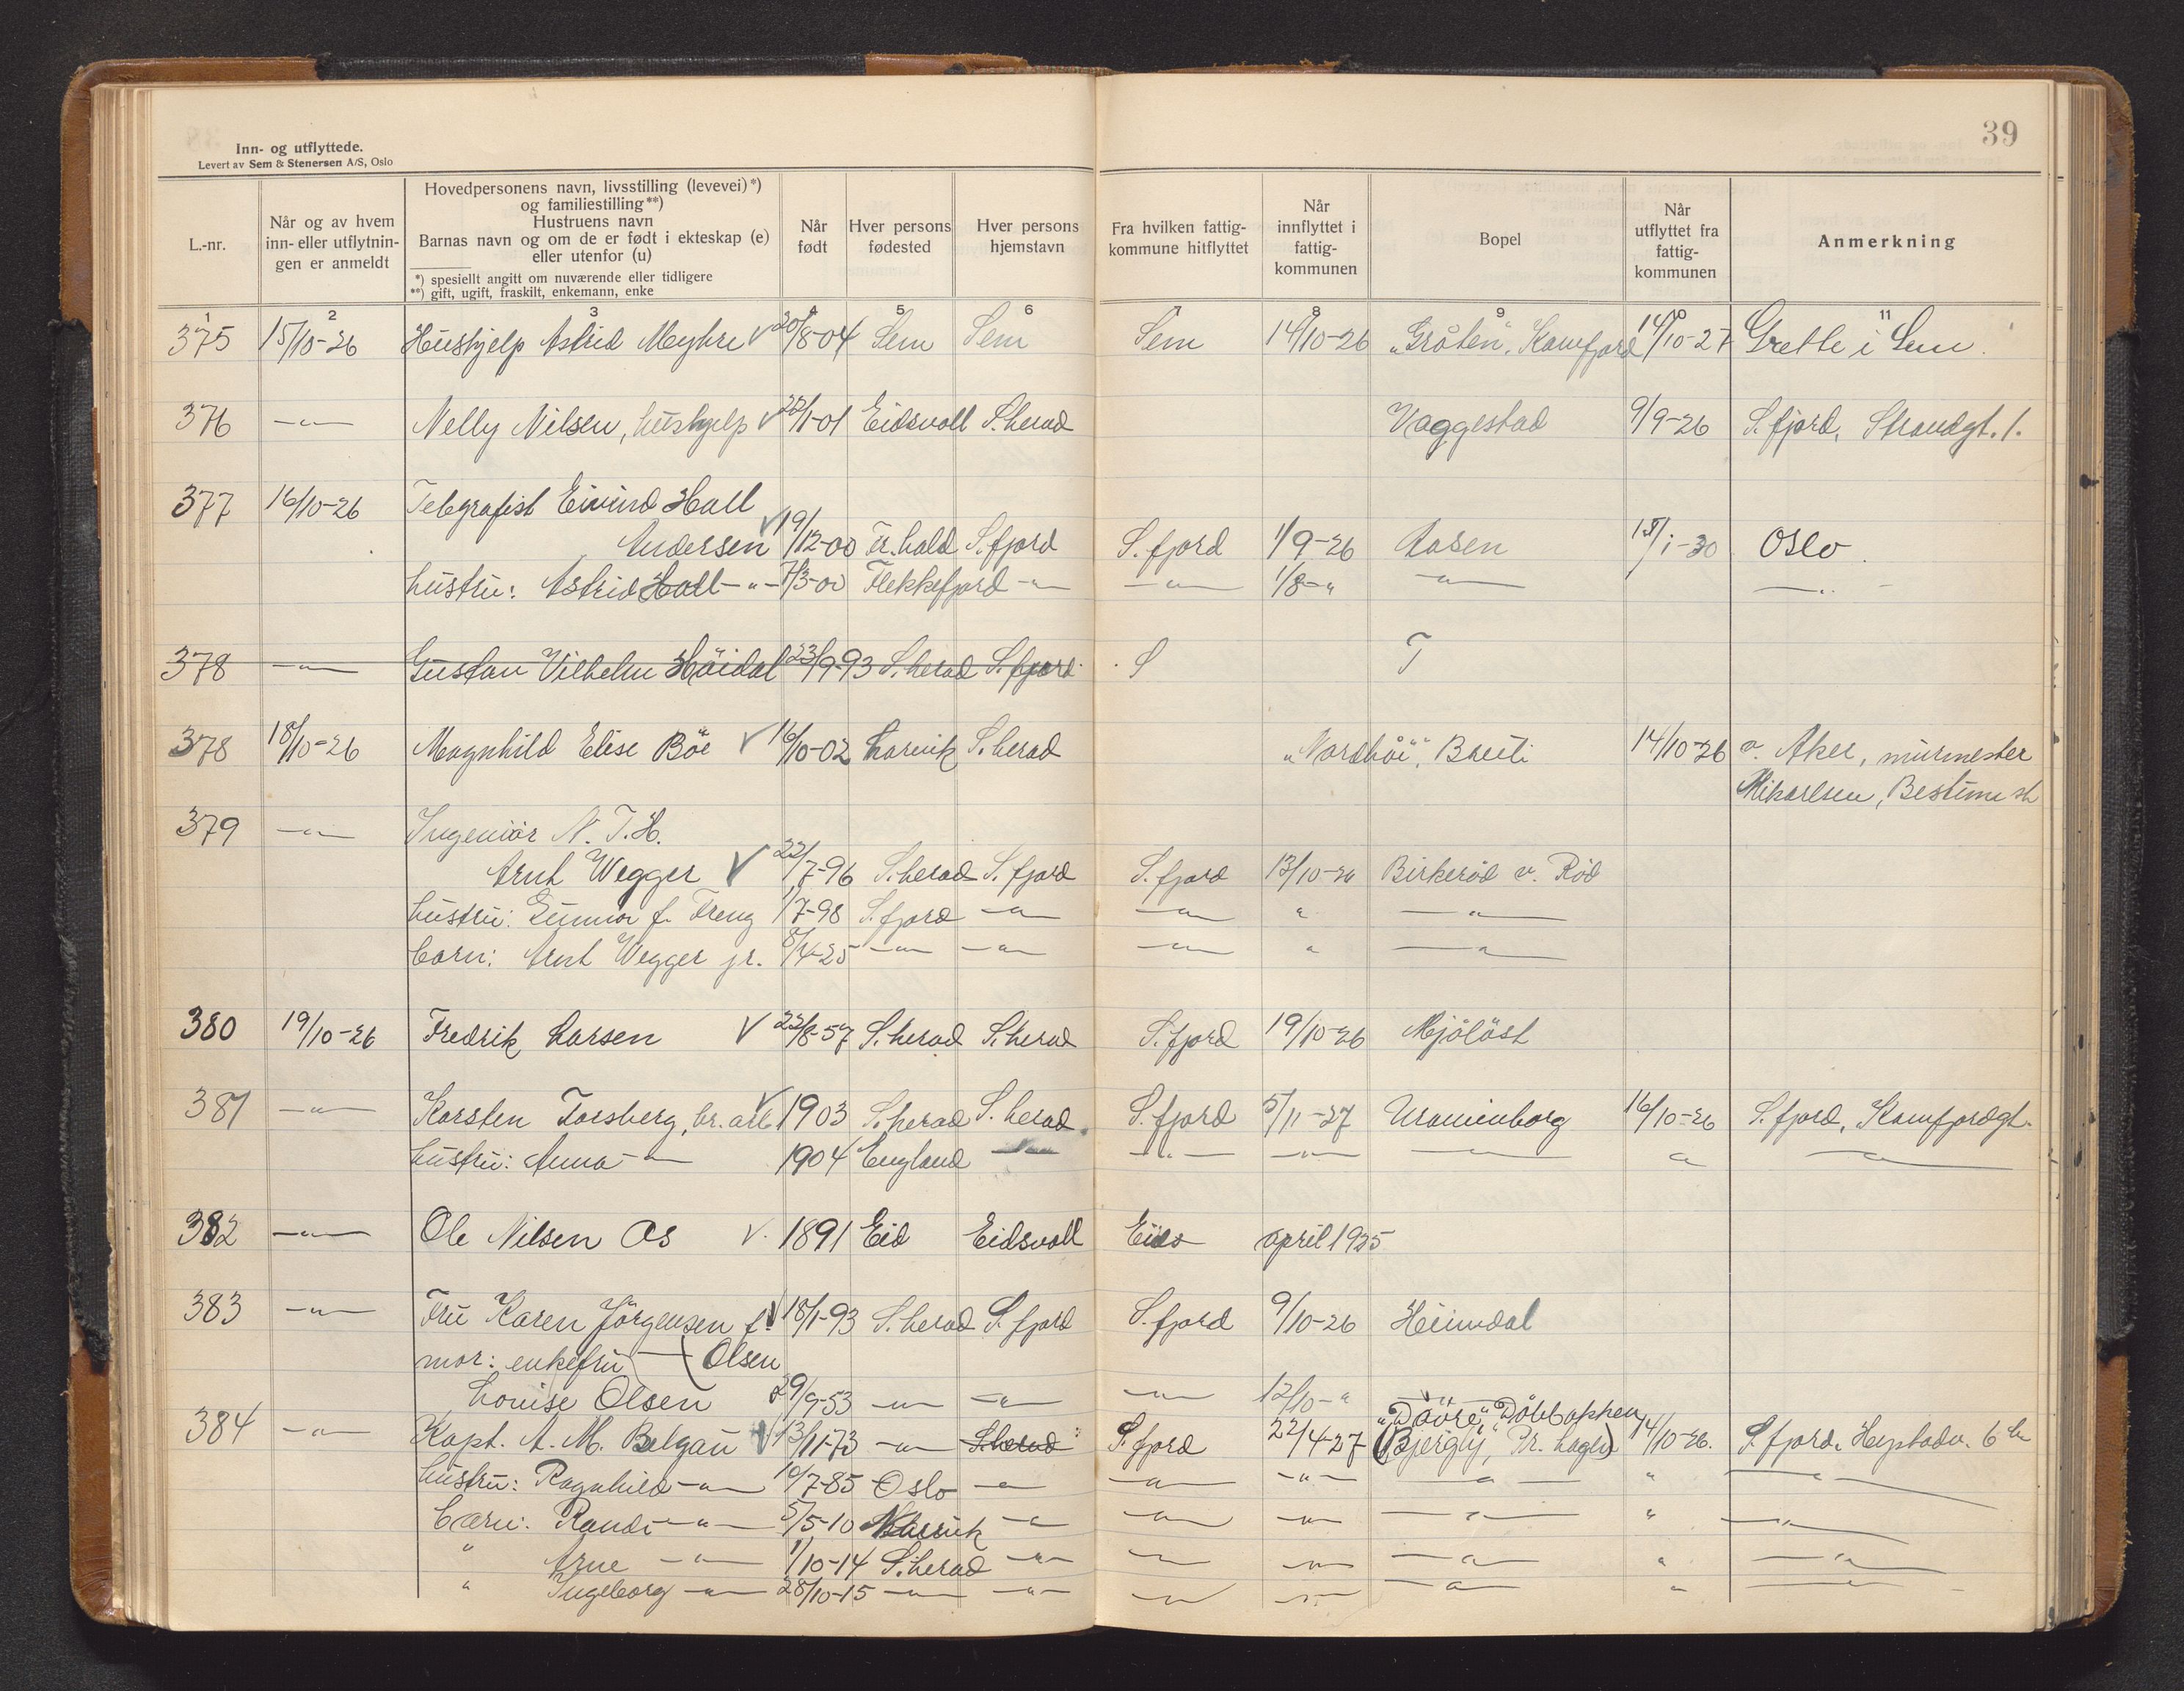 39
Inn- og utflyttede.
Levert av Sem & Stenersen A/S, Oslo
L.-nr.
Når og av hvem inn- eller utflytnin-gen er anmeldt
Hovedpersonens navn, livsstilling (levevei)*)
og familiestilling**)
Hustruens navn
Barnas navn og om de er født i ekteskap (e)
eller utenfor (u)
*) spesiellt angitt om nuværende eller tidligere
**) gift, ugift, fraskilt, enkemann, enke
Når født
Hver persons fødested
Hver persons hjemstavn
Fra hvilken fattig-kommune hitflyttet
Når innflyttet i fattig-kommunen
Bopel
Når utflyttet fra fattig-kommunen
Anmerkning
1 2 3 4 5 6 7 8 9 10 11
375 15/10-26 Hushjelp Astrid Myhre V 20/8-04 Sem Sem Sem 14/10-26 "Gråtén", Kamfjord 14/10-27 Grette i Sem.
376 —"— Nelly Nilsen, hushjelp V 22/1-01 Eidsvoll S.herad Vaggestad 9/9-26 S.fjord, Strandgt. 1.
377 16/10-26 Telegrafist Eivind Hall
Andersen V 19/12-00 Fr.hald S.fjord S.fjord 1/9-26 Aasen 15/1-30 Oslo.
hustru: Astrid Hall —"— 7/3-00 Flekkefjord —"— —"— 1/8-" —"— —"—
378 —"— Gustav Vilhelm Höidal 23/9-93 S.herad S.fjord S T
378 18/10-26 Magnhild Elise Böe V 16/10-02 Larvik S.herad "Nordhöi", Breili 14/10-26 v. Aker, murmester
Mikaelsen, Bestum st
379 —"— Ingeniör N.T.H.
Arnt Wegger V 22/7-96 S.herad S.fjord S.fjord 13/10-26 Birkeröd v. Röd
hustru: Gunvor f. Freng 1/7-98 S.fjord —"— —"— " —"—
barn: Arnt Wegger jr. 8/4-25 —"— —"— —"— " —"—
380 19/10-26 Fredrik Larsen V 22/8-57 S.herad S.herad S.fjord 19/10-26 Mjölöst
381 —"— Karsten Forsberg, br.arb. V 1903 S.herad S.herad S.fjord 5/11-27 Uranienborg 16/10-26 S.fjord, Kamfjordgt.
hustru: Anna —"— 1904 England —"— —"— —"— " —"—
382 —"— Ole Nilsen Os V. 1891 Eid Eidsvoll Eids april 1925
383 —"— Fru Karen Jörgensen f. V 18/1-93 S.herad S.fjord S.fjord 9/10-26 Heimdal
mor: enkefru — (Olsen
Louise Olsen 29/9-53 —"— —"— —"— 12/10-" —"—
"Dovre,"
384 —"— Kapt. A. M. Belgau V 13/11-73 —"— S.herad S.fjord 22/4-27 (Bjergly, Pr. hagen) 14/10-26. S.fjord, 6
hustru: Ragnhild —"— 10/7-85 Oslo —"— —"— —"— —"— " —"—
barn: Randi —"— 5/5-10 Narvik —"— —"— —"— —"— " —"—
" Arne —"— 1/10-14 S.herad —"— —"— —"— —"— " —"—
" Ingeborg —"— 28/10-15 —"— —"— —"— —"— —"— " —"—